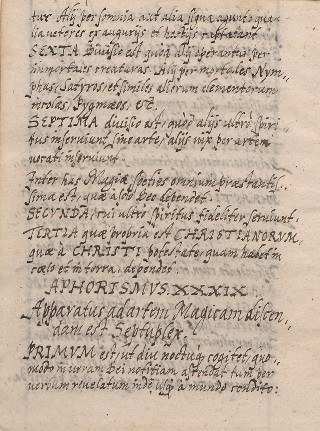 tur. Alij per somnia aut alia signa agunt, qua-
lia veteres ex augurijs et hostijs captabant.
SEXTA Divisio est quod alij operantur per
immortales creaturas. Alij per mortales, Nym-
phas, Satyros, et similes aliorum elementorum
incolas, Pygmæos, etc.
SEPTIMA divisio est, quod alijs ultro spiri-
tus inserviunt sine arte, alijs vix per artem
vocati inserviunt.
Inter has Magiæ species omnium præstantis-
sima est, quæ a solo Deo dependet.
SECUNDA, cui ulter spiritus fideliter serviunt.
TERTIA quæ propria est CHRISTIANORUM,
quæ a CHRISTI potestate, quam habet in
coelo et in terra, dependet.
APHORISMVS. XXXIX.
Apparatus ad artem Magicam discen-
dam est Septuplex.
PRIMUM est, ut diu noctuq cogitet, quo-
modo in veram Dei notitiam ascendat tum per
verbum revelatum inde usq a mundo condito: